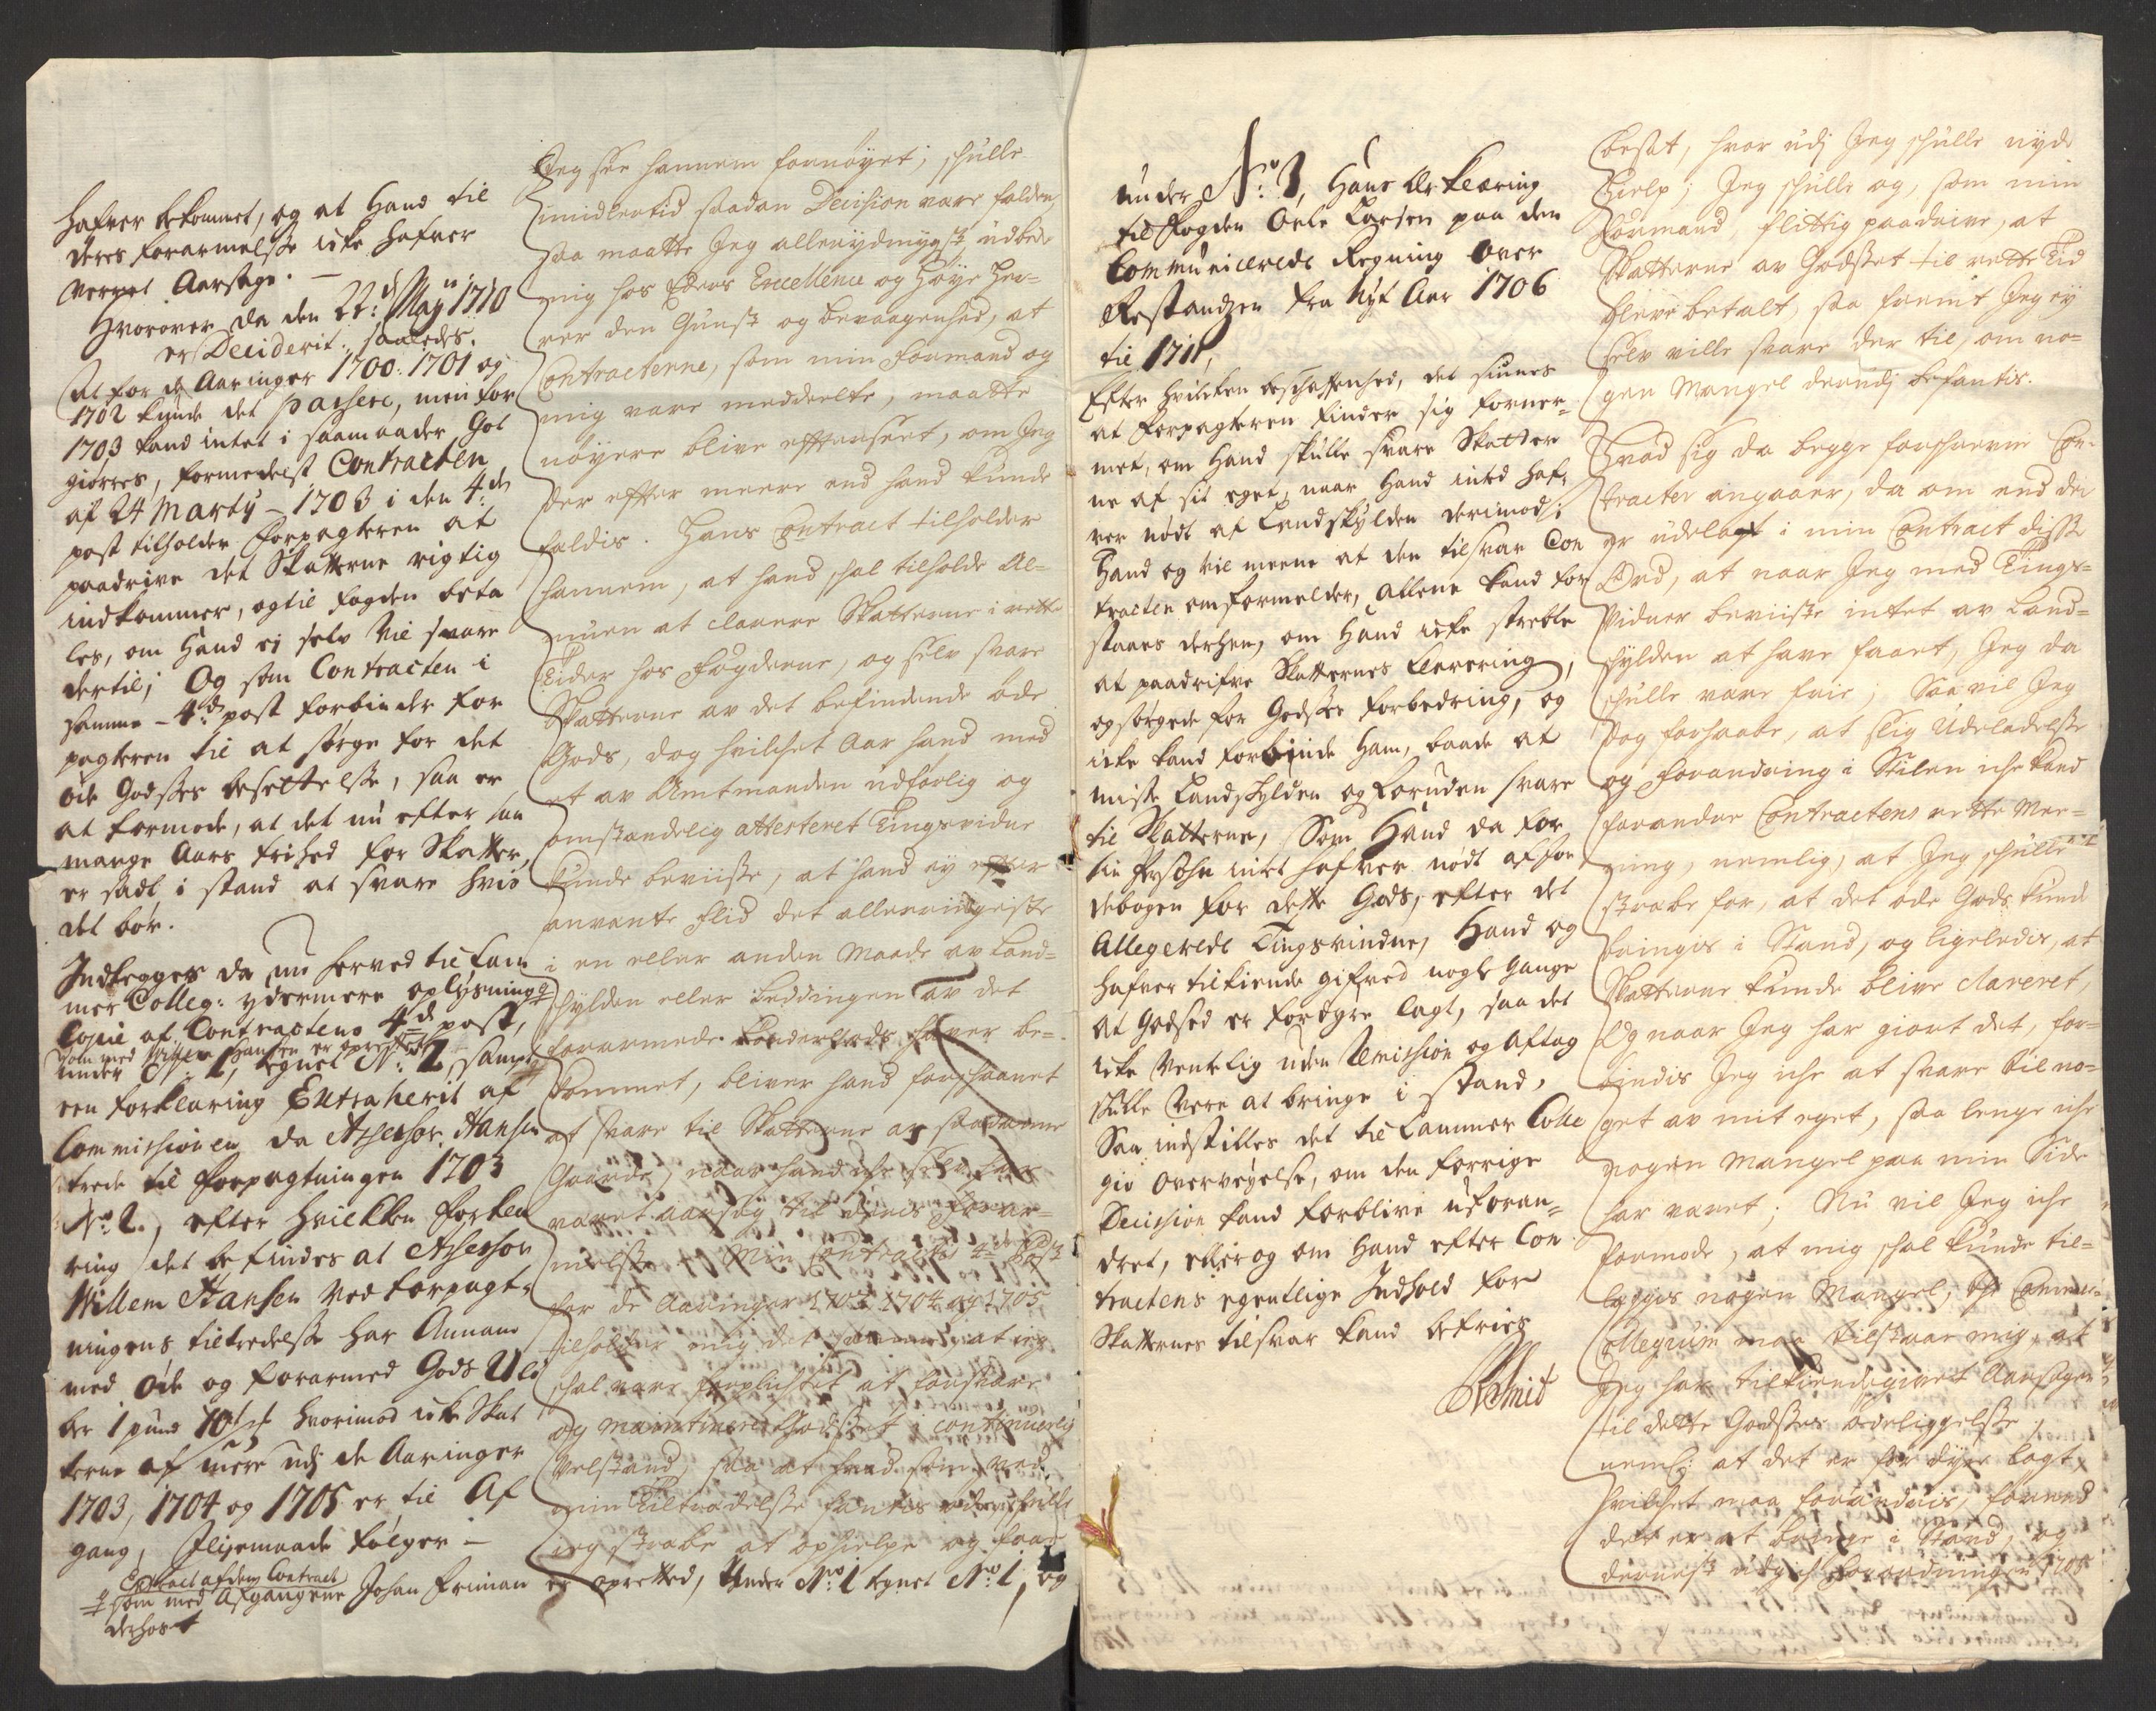 hafver bekommet, og at Hand til
deres forarmelsse icke hafver
verret Aarsage. —
Hvorover da den 22: Maÿ 1710
er Deciderit: saaledes.
At for de Aaringer 1700: 1701 og
1702 kunde det passere, men for
1703 kand intet i saamaader God
giørres, formedelst Contracten
af 24 Marty – 1703 i den 4de
post tilholder Forpagteren at
paadrive det Skatterne rigtig
indkommer, og til fogden beta
les, om Hand ej selv vil svare
dertil; Og som Contracten i
samme – 4de post forbinder for
pagteren til at sørge for det
øde Godsses besettelsse, saa er
at formode, at det nu efter saa
mange Aars frihed for Skatter,
er sadt i stand at svare hvis
det bør.
Indlegges da nu herved til Cam
mer Colleg: ydermere oplysning
Copie af Contractens 4de post,
som med Willem Hansen er oprettet
under No: 1, tegnet No: 1, samt
een forklaring Extraherit af
Commissionen da Assessor Hansen
trede til forpagtningen 1703
No 2., efter hvilcken forkla
ring det befindes at Assessor
Willem Hansen ved forpagt-
ningens tiltredelsse har Annam
med øde og forarmed Gods
1 pund hvorimod icke Skat
terne af mere udj de Aaringer
1703, 1704 og 1705 er til Af
gang, Iligemaade følger –
Extract af den Contract
som med Afgangne Johan Friman er opretted, Under No 1 tegnet No 1, og
derhos
Jeg see hannem fornøyet; schulle
imidlertid saadan Decision være falden,
saa maatte Jeg allerydmygst udbede
mig hos Eders Excellence og Høye Her-
rer den Gunst og bevaagenhed, at
Contracterne, som min Formand og
mig vare meddeelte, maatte
nøyere blive efterseet, om Jeg
der efter meere end hand kunde
feldis. Hans Contract tilholder
hannem, at hand schal tilholde Al-
muen at clarere Skatterne i rette
Tider hos Fogderne, og self svare
Skatterne av det befindende øde
Gods, dog hvilchet Aar hand med
et av Amtmanden udførlig og
omstændelig attesteret Tingsvidne
kunde beviisse, at hand ey efter
anvante flid det allerringeste
i en eller anden Maade av Land-
schylden eller Leddingen av det
forarmede Gods haver be-
kommet, bliver hand forschaanet
at svare til Skatterne av saadanne
Gaarde, naar hand iche selv har
været aarsag til deris forar-
melsse. Min Contractes 4de Post
for de Aaringer 1703, 1704 og 1705
tilholder mig det samme, at jeg
schal være forplichtet at forsvare
og maintinere Godsset i continuerlig
Velstand, saa at hvad som ved
min Tiltrædelsse fantes øde, schulle
jeg stræbe at ophielpe og faae
under No: 3, Hans Erklæring
til Fogden Oele Larsen paa den
Communicerede Regning over
Restandzen fra Nyt Aar 1706
til 1711,
Efter hvilcken beschaffenhed, det siunes
at Forpagteren finder sig forner-
met, om Hand skulle svare Skatter
ne af sit eget, naar Hand inted haf-
ver nødt af Landskylden derimod;
Hand og vil meene at den tilsvar Con
tracten omformelder, allene kand for
staaes derhen, om Hand icke strebte
at paadrifve Skatternes Levering,
og sørgede for Godsses forbedring, og
icke kand forbinde Ham, baade at
miste Landskylden og foruden svare
til Skatterne, Som Hand da for
sin Persohn intet hafver nødt af for
debogen for dette Gods, efter det
Allegerede Tingsvindne, Hand og
hafver tilkiende gifved nogle Gange
at Godsed er fordyre lagt, saa det
icke Ventelig uden Remission og Aftag
skulle Vere at bringe i stand,
Saa indstilles det til Cammer Colle
gio Overveyelse, om den forrige
Decission kand forblive uforan-
dret, eller og om Hand efter Con
tractens egentlige Indhold for
Skatternes tilsvar kand befries
besat, hvor udj Jeg schulle nyde
Hielp; Jeg schulle og, som min
Formand, flittig paadrive, at
Skatterne av Godsset til rette Tid
bleve betalt, saa fremt Jeg ey
self ville svare der til, om no-
gen Mangel derudj befantis.
Hvad sig da begge forschrevne Con-
tracter angaaer, da om end der
er udelagt i min Contract disse
Ord, at naar Jeg med Tings-
Vidner beviiste intet av Land-
schylden at have faaet, Jeg da
schulle være frie, Saa vil Jeg
dog forhaabe, at slig Udeladelsse
og forandring i Stilen iche kand
forandre Contractens rette Mee-
ning, nemlig, at Jeg schulle
stræbe for, at det øde Gods kunde
bringis i Stand, og ligeledis, at
Skatterne kunde blive clareret,
Og naar Jeg har giort det, for-
bindis Jeg iche at svare til no-
get av mit eget, saa lenge iche
nogen Mangel paa min Side
har været; Nu vil Jeg iche
formode, at mig schal kunde til-
legges nogen Mangel,
Collegium maa tilstaae mig, at
Jeg har tilkiendegivet Aarsagen
til dette Godsses ødeliggelsse,
neml: at det er for dyre lagt,
hvilchet maa forandris, førend
det er at bringe i Stand, og
dernest Forordningen 1705